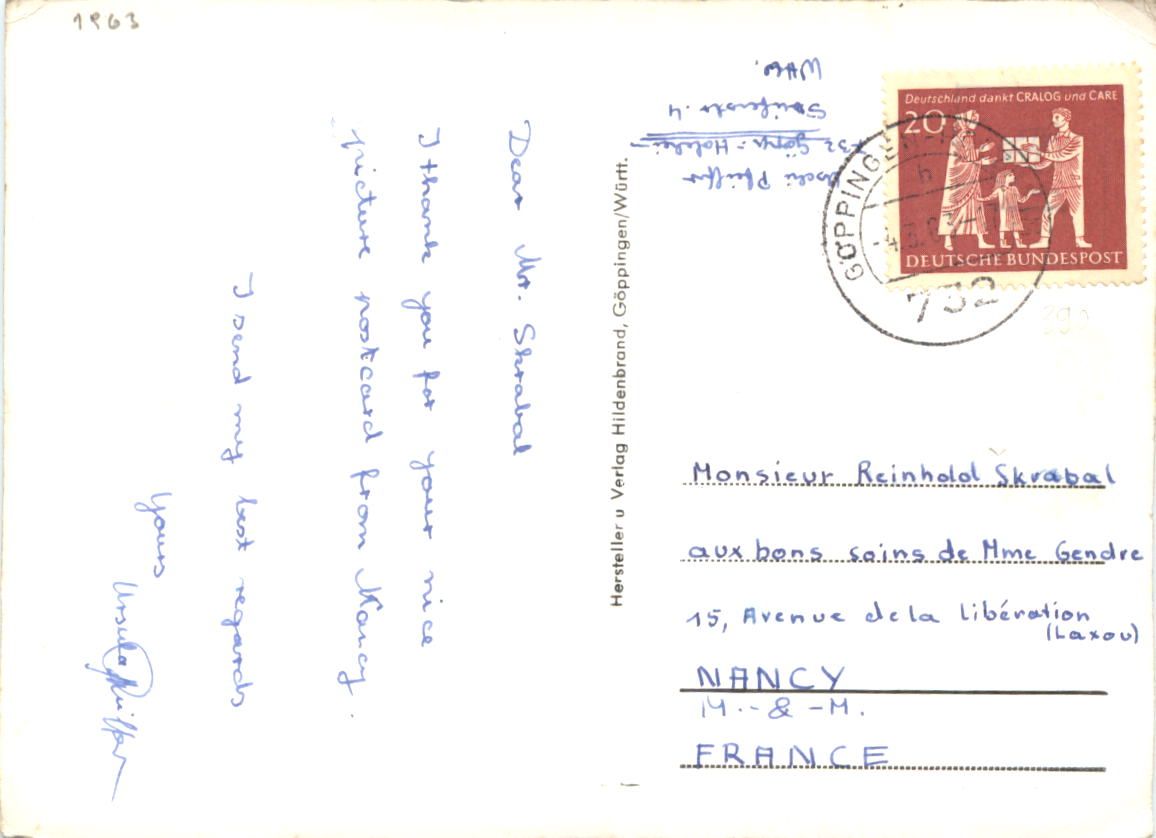 1963
Dear Mr. Skrabal
I thank you for your nice
picture postcard from Nancy.
I send my best regards
Yours
Ursula Pfeiffer
Hersteller u Verlag Hildenbrand, Göppingen/Württ.
Uschi Pfeiffer
732 Göpp.-Holzh.
4
Deutschland dankt CRALOG und CARE
20
DEUTSCHE BUNDESPOST
GÖPPINGEN
h
732
Monsieur Reinhold Škrabal
aux bons soins de Mme Gendre
15, Avenue de la libération
(Laxou)
NANCY
M.-&-M.
FRANCE